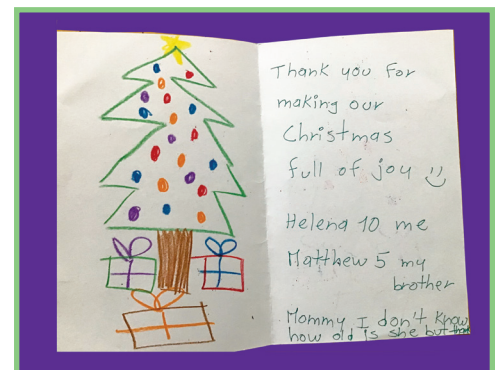 Thank you For
making our
Christmas
full of joy :)
Helena 10 me
Matthew 5 my
brother
Mommy I don't know
how old is she but thank